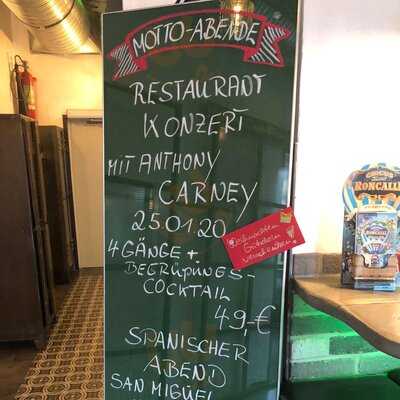 MOTTO-ABENDE
RESTAURANT
KONZERT
MIT ANTHONY
CARNEY
25.01.20
4 GÄNGE +
BEGRÜßUNGS-
COCKTAIL
49,-€
SPANISCHER
ABEND
SAN MIGUEL
Weihnachten
Gutschein
verschenken
CIRCUS
RONCALLI